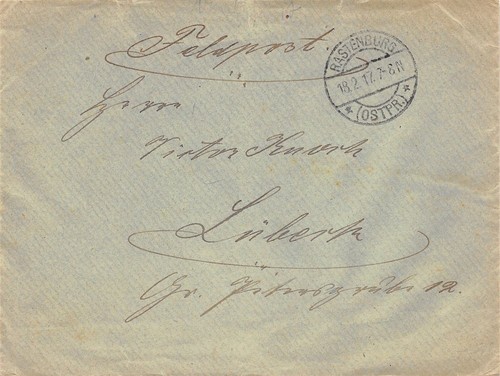 Feldpost.
RASTENBURG
18.2.17.7-8N
* (OSTPR.) *
Herrn
Victor Knock
Lübeck
Gr. Petersgrube 12.